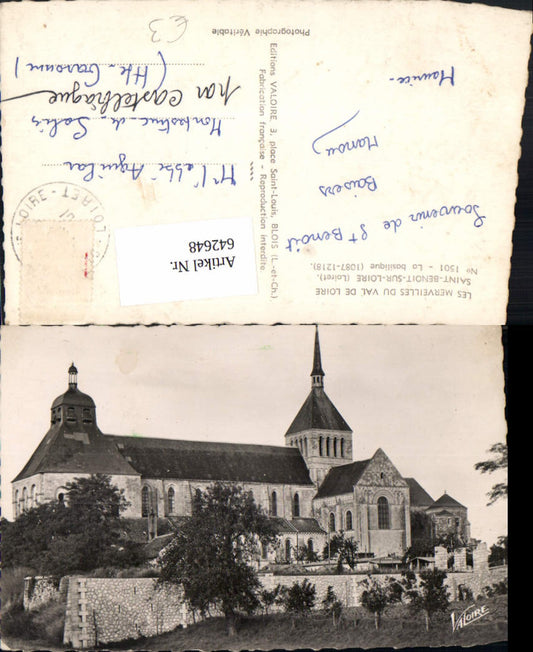 LES MERVEILLES DU VAL DE LOIRE
SAINT-BENOIT-SUR-LOIRE (Loiret).
No 1501 - La basilique (1087-1218).
Souvenir de St Benoit
Baisers
Manou
Maurice
Editions VALOIRE 3, place Saint-Louis, BLOIS (L.-et-Ch.)
Fabrication française - Reproduction interdite.
Photographie Véritable
LOIRE - LOIRET
Mr l'abbé Aguilar
Montastruc-de-Salies
par Castelbiague
(Hte-Garonne)
€3
Artikel Nr.
642648
VALOIRE